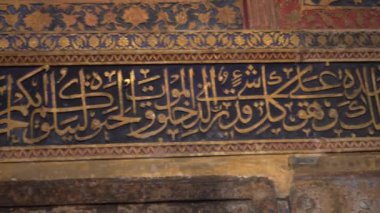 وهو على كل شىء قدير الذى خلق الموت والحيوة ليبلوكم ايكم